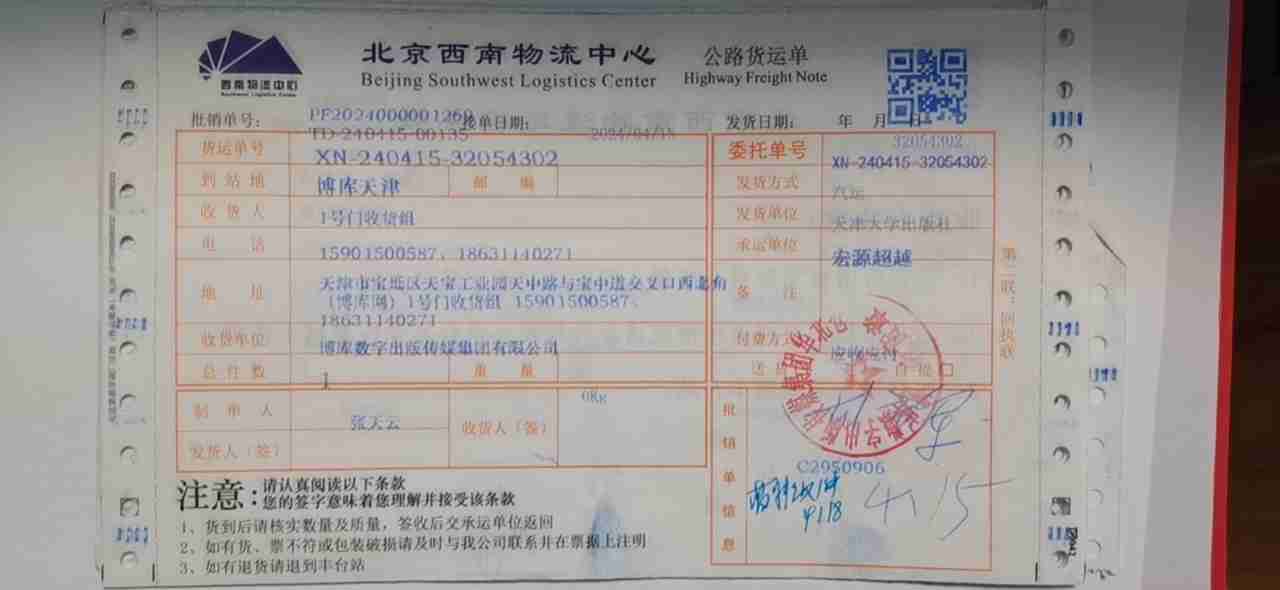 西南物流中心
Southwest Logistics Center
北京西南物流中心
Beijing Southwest Logistics Center
公路货运单
Highway Freight Note
批销单号: PF2024000001260
TD-240415-00135
接单日期: 2024/04/15
发货日期: 年 月 日
货运单号 XN-240415-32054302
委托单号 32054302
XN-240415-32054302
到站地 博库天津 邮编
发货方式 汽运
收货人 1号门收货组
发货单位 天津大学出版社
电话 15901500587、18631140271
承运单位 宏源超越
地址 天津市宝坻区天宝工业园天中路与宝中道交叉口西北角
(博库网)1号门收货组 15901500587、
18631140271
备注
收货单位 博库数字出版传媒集团有限公司
付费方式 应收应付
总件数 1 重量 0Kg
送 自提口
制单人 张天云
收货人(签)
发货人(签)
批销单信息
C2950906
4.18
4.15
第二联:回执联
注意:请认真阅读以下条款
您的签字意味着您理解并接受该条款
1、货到后请核实数量及质量,签收后交承运单位返回
2、如有货、票不符或包装破损请及时与我公司联系并在票据上注明
3、如有退货请退到丰台站